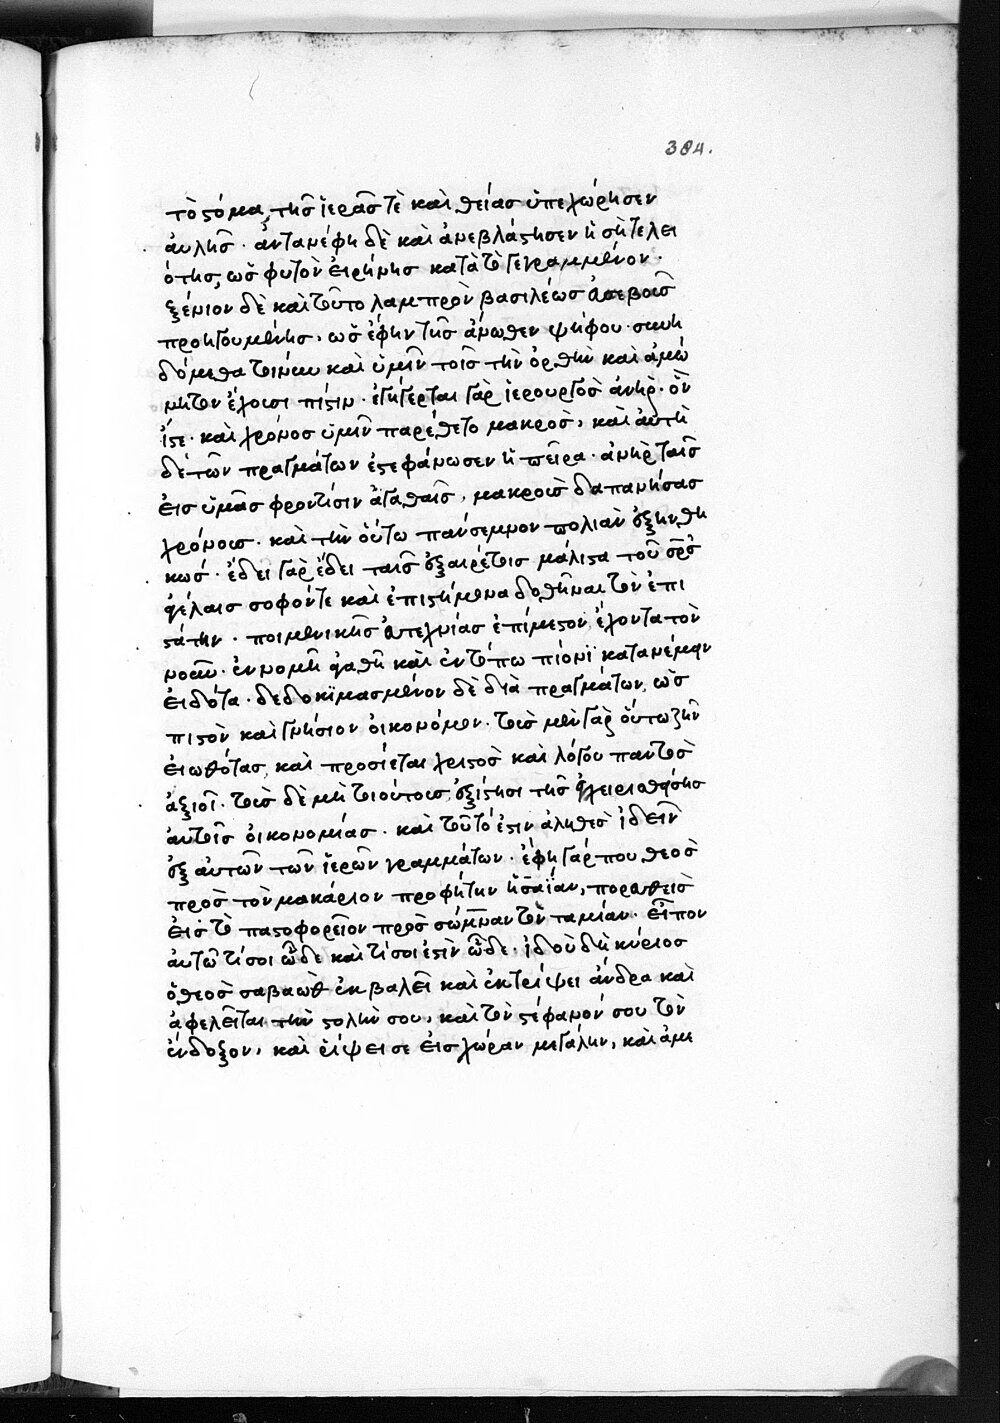 384.
τὸ στόμα, τῆς ἱερᾶς τὲ καὶ θείας ὑπεχώρησεν
αὐλῆς. ἀντανέφη δὲ καὶ ἀνεβλάστησεν ἡ σὴ τελει
ότης, ὡς φυτὸν εἰρήνης κατὰ τὸ γεγραμμένον.
ξένιον δὲ καὶ τοῦτο λαμπρὸν βασιλέως εὐσεβοῦς
προηγουμένης, ὡς ἔφην τῆς ἄνωθεν ψήφου. συνη
δόμεθα τοίνυν καὶ ὑμῖν τοῖς τὴν ὀρθὴν καὶ ἀμώ
μητον ἔχουσι πίστιν. ἐγήγερται γὰρ ἱερουργὸς ἀνὴρ. ὃν
ἴστε. καὶ χρόνος ὑμῖν παρέθετο μακρὸς, καὶ αὐτὴ
δὲ τῶν πραγμάτων ἐστεφάνωσεν ἡ πεῖρα. ἀνὴρ ταῖς
εἰς ὑμᾶς φροντίσιν ἀγαθαῖς, μακροὺς δαπανήσας
χρόνους. καὶ τὴν οὕτω πάνσεμνον πολιὰν ἐξηνθη
κώς. ἔδει γὰρ ἔδει ταῖς ἐξαιρέτοις μάλιστα τοῦ σρς
ἀγέλαις σοφόν τε καὶ ἐπιστήμονα δοθῆναι τὸν ἐπι
στάτην. ποιμενικῆς εὐτεχνίας ἐπίμεστον, ἔχοντα τὸν
νοῦν. ἐν νομῇ ἀγαθῇ καὶ ἐν τόπῳ πίονϊ κατανέμειν
εἰδότα. δεδοκϊμασμένον δὲ διὰ πραγμάτων, ὡς
πιστὸν καὶ γνήσιον οἰκονόμον. τοὺς μὲν γὰρ οὕτω ζῆν
εἰωθότας, καὶ προσίεται χριστὸς καὶ λόγου παντὸς
ἀξιοῖ. τοὺς δὲ μὴ τοιούτους, ἐξίστησι τῆς ἐγχειρισθείσης
αὐτοῖς οἰκονομίας. καὶ τοῦτό ἐστιν ἀληθὲς ἰδεῖν
ἐξ αὐτῶν τῶν ἱερῶν γραμμάτων. ἔφη γάρ που θεὸς
πρὸς τὸν μακάριον προφήτην ἡσαΐαν, πορευθεὶς
εἰς τὸ παστοφορεῖον πρὸς σώμναν τὸν ταμίαν. εἶπον
αὐτῷ τί σοι ὧδε καὶ τί σοι ἐστὶν ὧδε. ἰδοὺ δὴ κύριος
ὁ θεὸς σαβαὼθ ἐκβαλεῖ καὶ ἐκτρίψει ἄνδρα καὶ
ἀφελεῖται τὴν στολήν σου, καὶ τὸν στέφανόν σου τὸν
ἔνδοξον, καὶ ῥίψει σε εἰς χώραν μεγάλην, καὶ ἀμε